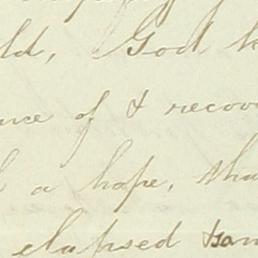 ld, God k
nce of & recov
a hope, tha
elapsed